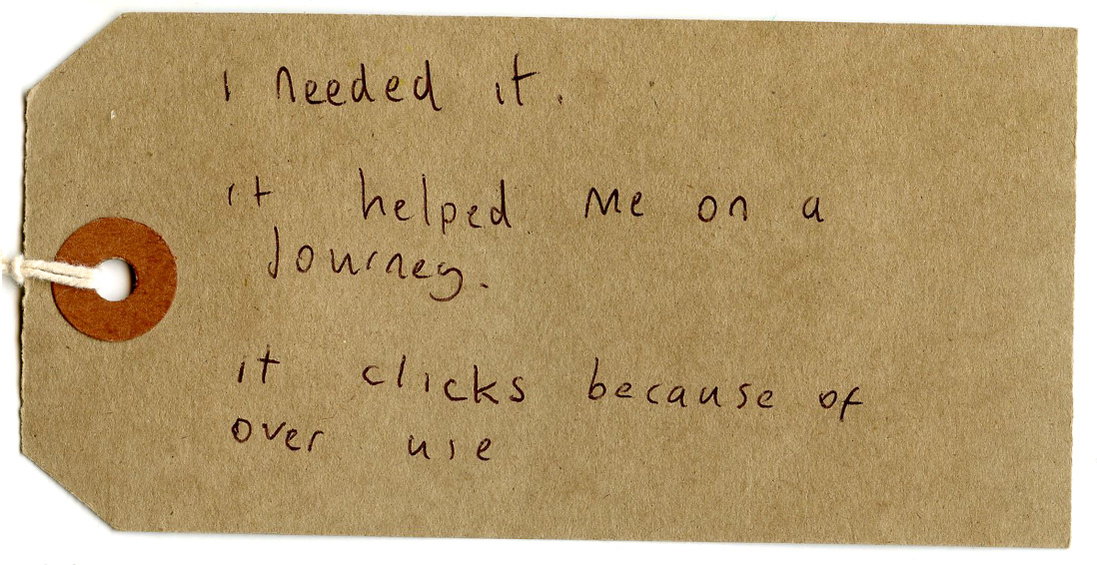 i needed it.
it helped me on a
Journey.
it clicks because of
over use